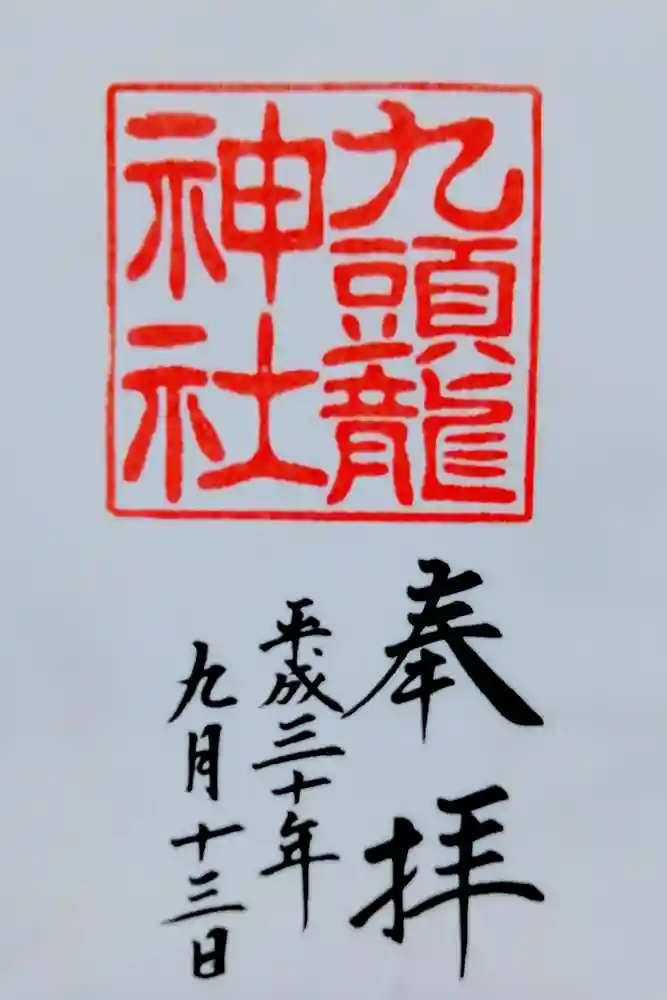 九頭龍
神社
奉拝
平成三十年
九月十三日